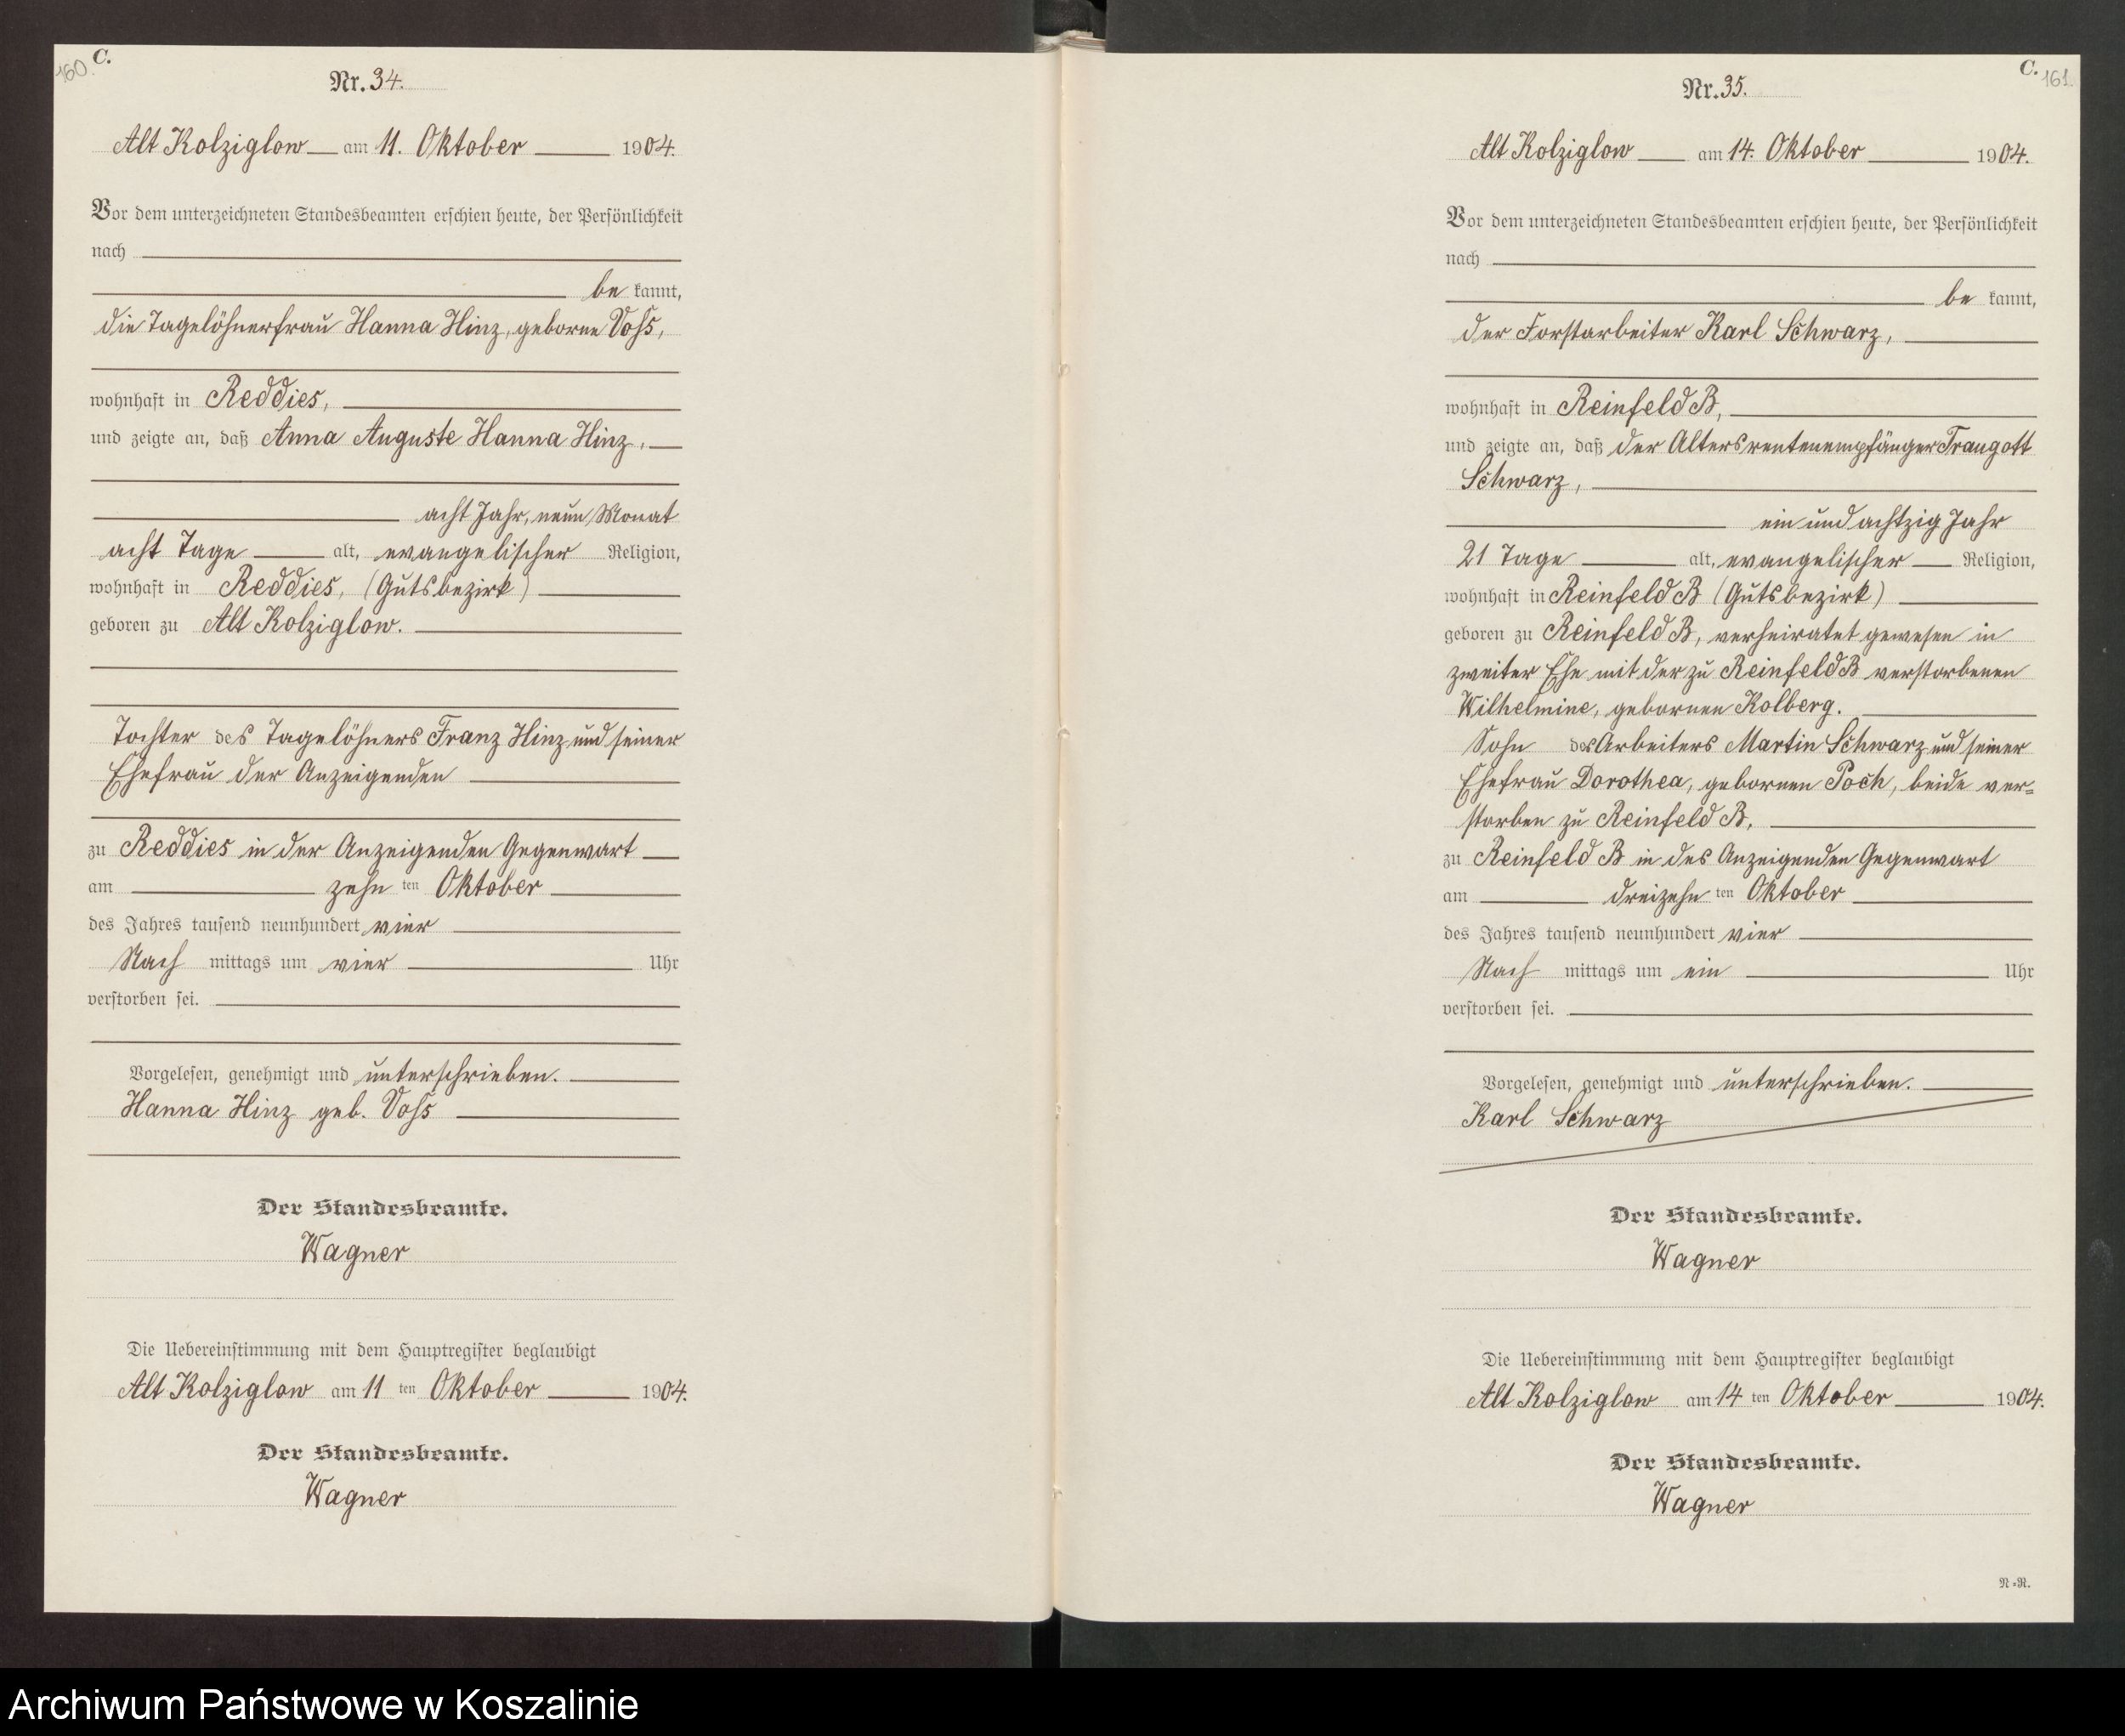 160. C.
Nr. 34.
Alt Kolziglow am 11. Oktober 1904.
Vor dem unterzeichneten Standesbeamten erschien heute, der Persönlichkeit
nach
be kannt,
die Tagelöhnerfrau Hanna Hinz, geborne Voß,
wohnhaft in Reddies,
und zeigte an, daß Anna Auguste Hanna Hinz,
acht Jahr, neun Monat
acht Tage alt, evangelischer Religion,
wohnhaft in Reddies, (Gutsbezirk)
geboren zu Alt Kolziglow.
Tochter des Tagelöhners Franz Hinz und seiner
Ehefrau der Anzeigenden
zu Reddies in der Anzeigenden Gegenwart
am zehn ten Oktober
des Jahres tausend neunhundert vier
Nach mittags um vier Uhr
verstorben sei.
Vorgelesen, genehmigt und unterschrieben.
Hanna Hinz geb. Voß
Der Standesbeamte.
Wagner
Die Uebereinstimmung mit dem Hauptregister beglaubigt
Alt Kolziglow am 11 ten Oktober 1904.
Der Standesbeamte.
Wagner
C. 161.
Nr. 35.
Alt Kolziglow am 14. Oktober 1904.
Vor dem unterzeichneten Standesbeamten erschien heute, der Persönlichkeit
nach
be kannt,
der Forstarbeiter Karl Schwarz,
wohnhaft in Reinfeld B,
und zeigte an, daß der Altersrentenempfänger Traugott
Schwarz,
ein und achtzig Jahr
21 Tage alt, evangelischer Religion,
wohnhaft in Reinfeld B (Gutsbezirk)
geboren zu Reinfeld B, verheiratet gewesen in
zweiter Ehe mit der zu Reinfeld B verstorbenen
Wilhelmine, gebornen Kolberg.
Sohn des Arbeiters Martin Schwarz und seiner
Ehefrau Dorothea, gebornen Poch, beide ver=
storben zu Reinfeld B,
zu Reinfeld B in des Anzeigenden Gegenwart
am dreizehn ten Oktober
des Jahres tausend neunhundert vier
Nach mittags um ein Uhr
verstorben sei.
Vorgelesen, genehmigt und unterschrieben.
Karl Schwarz
Der Standesbeamte.
Wagner
Die Uebereinstimmung mit dem Hauptregister beglaubigt
Alt Kolziglow am 14 ten Oktober 1904.
Der Standesbeamte.
Wagner
N=R.
Archiwum Państwowe w Koszalinie